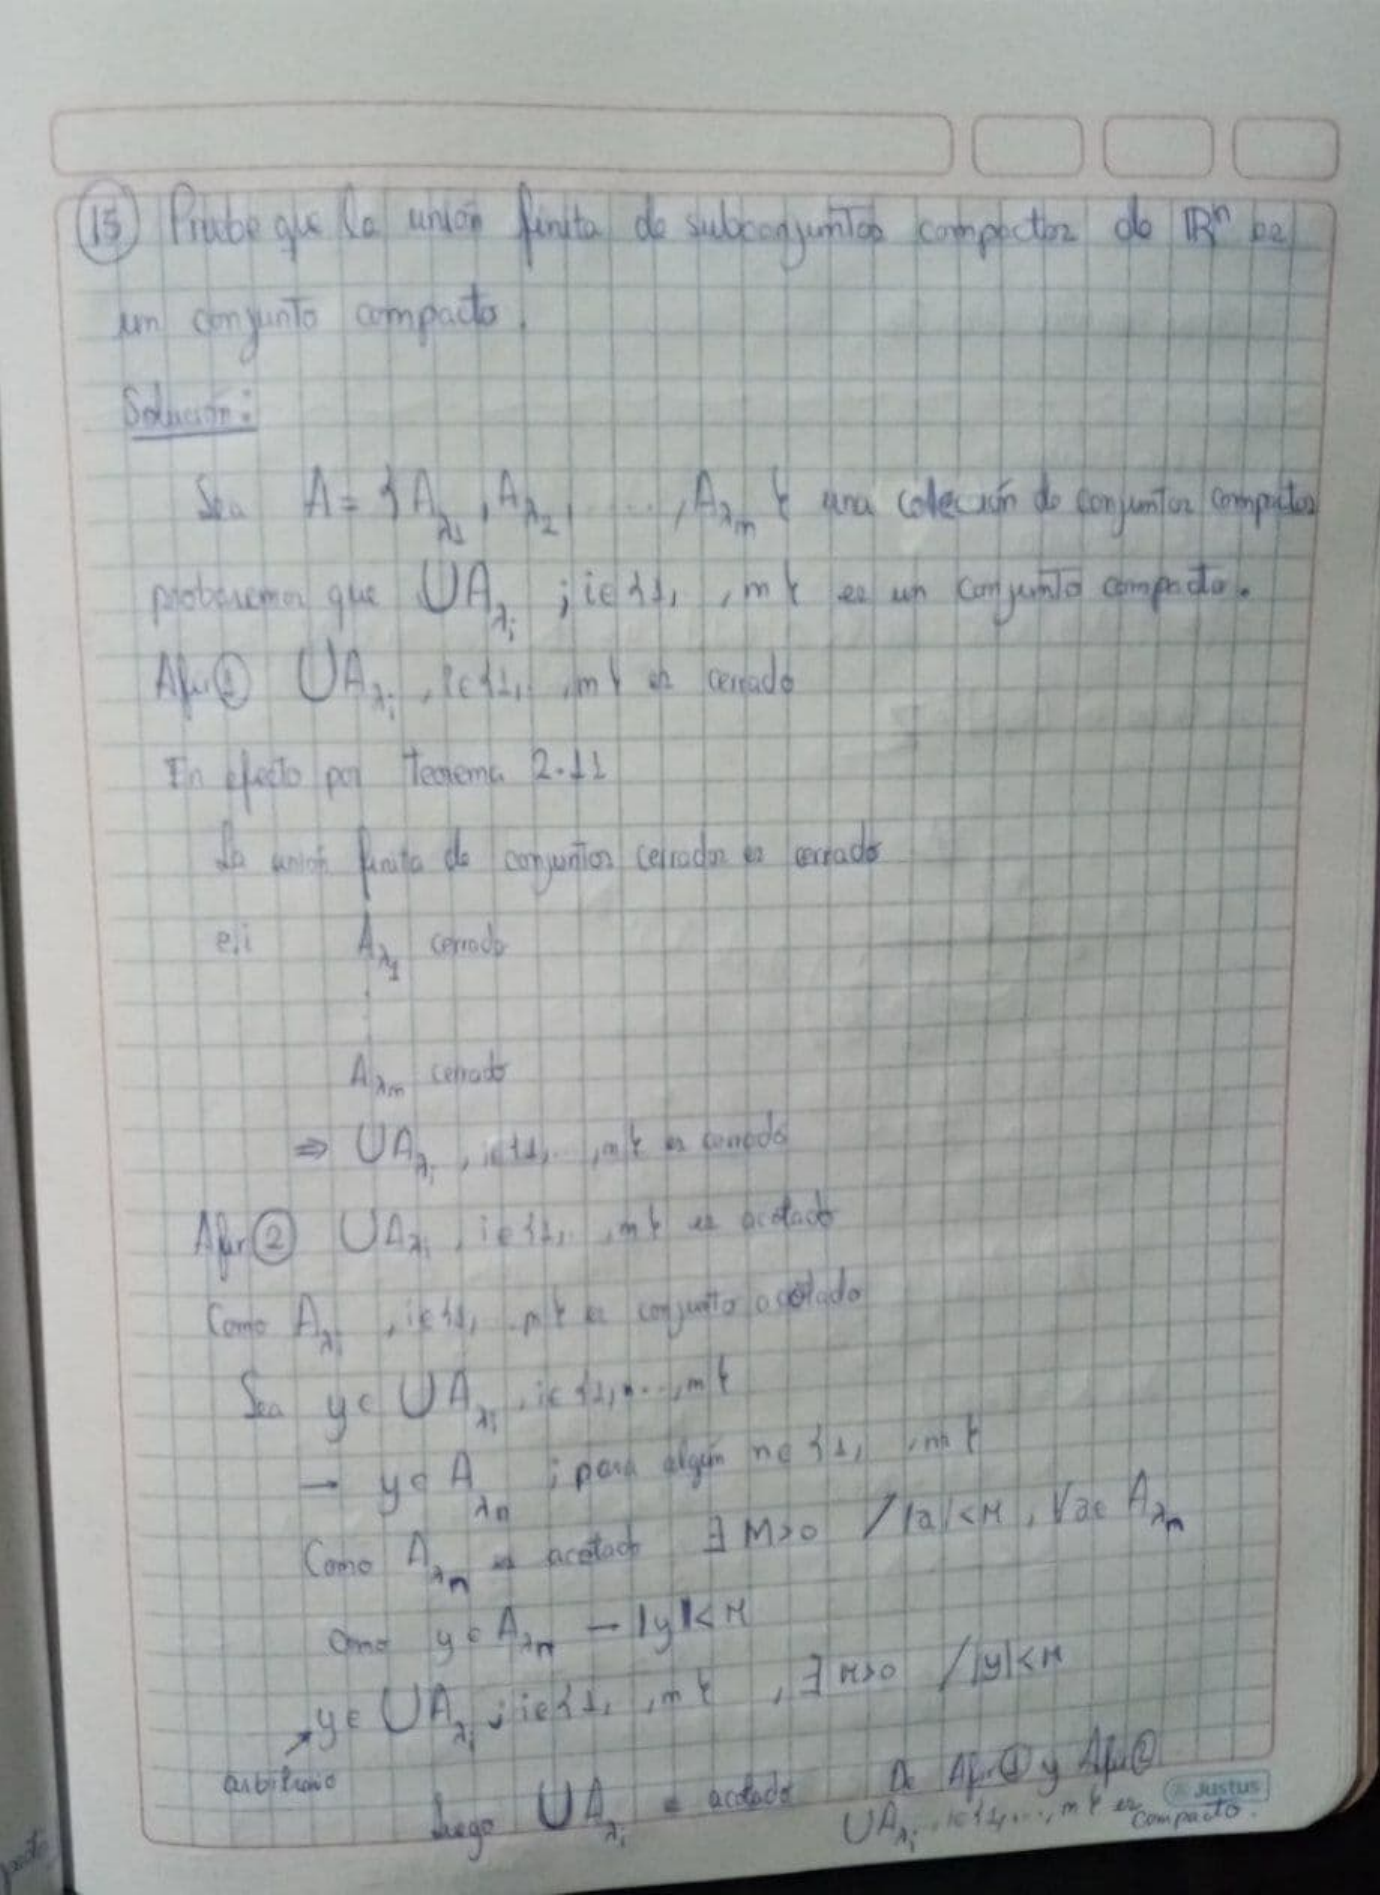 15 Pruebe que la unión finita de subconjuntos compactos de ℝⁿ es
un conjunto compacto.
Solución:
Sea A = {A_λ₁, A_λ₂, ..., A_λm} una colección de conjuntos compactos
probaremos que ∪A_λi ; i∈{1, , m} es un conjunto compacto.
Afir ① ∪A_λi , i∈{1, , m} es cerrado
En efecto por teorema 2.11
La unión finita de conjuntos cerrados es cerrado
A_λ₁ cerrado
⋮
A_λm cerrado
⇒ ∪A_λi , i∈{1, ..., m} es cerrado
Afir ② ∪A_λi , i∈{1, , m} es acotado
Como A_λi , i∈{1, , m} es conjunto acotado
Sea y∈ ∪A_λi , i∈{1, ..., m}
→ y∈ A_λn ; para algún n∈{1, , m}
Como A_λn es acotado ∃ M>0 / |a|<M , ∀a∈ A_λn
como y∈A_λn → |y|<M
y∈ ∪A_λi ; i∈{1, , m} , ∃ M>0 / |y|<M
arbitrario
luego ∪A_λi es acotado
De Afir ① y Afir ②
∪A_λi , i∈{1, ..., m} es compacto.
Justus
pacto